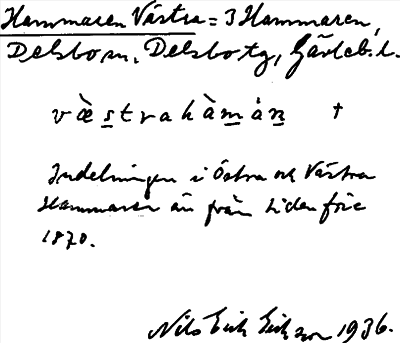 Hammaren Västra = 3 Hammaren,
Delsbo sn, Delsbo tg, Gävleb. l.
væ̀strahàmàn †
Indelningen i Östra och Västra
Hammaren är från tiden före
1870.
Nils Erik Erikson 1936.